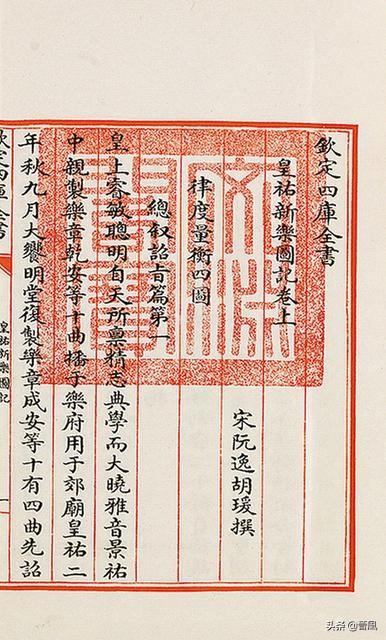 欽定四庫全書
皇祐新樂圖記卷上
宋阮逸胡瑗撰
律度量衡四圖
總叙詔旨篇第一
皇上睿敏聰明自天所禀精志典學而大曉雅音景祐
中親製樂章乾安等十曲播于樂府用于郊廟皇祐二
年秋九月大饗明堂復製樂章成安等十有四曲先詔
欽定四庫全書
皇祐新樂圖記
一
文淵閣寶
头条@蕾風